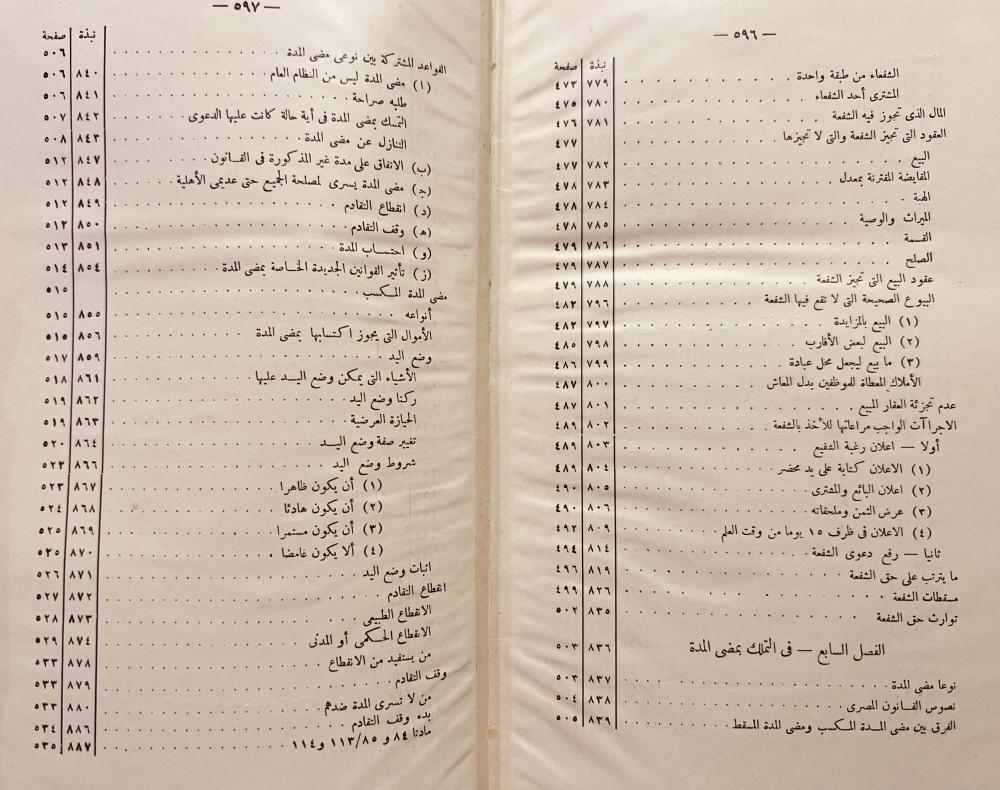 — ٥٩٦ —
نبذة صفحة
الشفعاء من طبقة واحدة ٧٧٩ ٤٧٣
المشترى أحد الشفعاء ٧٨٠ ٤٧٥
المال الذى تجوز فيه الشفعة ٧٨١ ٤٧٦
العقود التى تجيز الشفعة والتى لا تجيزها ٤٧٧
البيع ٧٨٢ ٤٧٧
المقايضة المقترنة بمعدل ٧٨٣ ٤٧٨
الهبة ٧٨٤ ٤٧٨
الميراث والوصية ٧٨٥ ٤٧٨
القسمة ٧٨٦ ٤٧٩
الصلح ٧٨٧ ٤٧٩
عقود البيع التى تجيز الشفعة ٧٨٨ ٤٧٩
البيوع الصحيحة التى لا تقع فيها الشفعة ٧٩٦ ٤٨٢
(١) البيع بالمزايدة ٧٩٧ ٤٨٢
(٢) البيع لبعض الأقارب ٧٩٨ ٤٨٥
(٣) ما بيع ليجعل محل عبادة ٧٩٩ ٤٨٦
الأملاك المعطاة للموظفين بدل المعاش ٨٠٠ ٤٨٧
عدم تجزئة العقار المبيع ٨٠١ ٤٨٧
الاجراآت الواجب مراعاتها للأخذ بالشفعة ٨٠٢ ٤٨٩
أولا — اعلان رغبة الشفيع ٨٠٣ ٤٨٩
(١) الاعلان كتابة على يد محضر ٨٠٤ ٤٨٩
(٢) اعلان البائع والمشترى ٨٠٥ ٤٩٠
(٣) عرض الثمن وملحقاته ٨٠٦ ٤٩٠
(٤) الاعلان فى ظرف ١٥ يوما من وقت العلم ٨٠٩ ٤٩٢
ثانيا — رفع دعوى الشفعة ٨١٤ ٤٩٤
ما يترتب على حق الشفعة ٨١٩ ٤٩٦
مسقطات الشفعة ٨٢٦ ٤٩٩
توارث حق الشفعة ٨٣٥ ٥٠٢
الفصل السابع — فى التملك بمضى المدة ٨٣٦ ٥٠٣
نوعا مضى المدة ٨٣٧ ٥٠٣
نصوص القانون المصرى ٨٣٨ ٥٠٤
الفرق بين مضى المدة المكسب ومضى المدة المسقط ٨٣٩ ٥٠٥
— ٥٩٧ —
نبذة صفحة
القواعد المشتركة بين نوعى مضى المدة ٥٠٦
(ا) مضى المدة ليس من النظام العام ٨٤٠ ٥٠٦
طلبه صراحة ٨٤١ ٥٠٦
التمسك بمضى المدة فى أية حالة كانت عليها الدعوى ٨٤٢ ٥٠٧
التنازل عن مضى المدة ٨٤٣ ٥٠٨
(ب) الاتفاق على مدة غير المذكورة فى القانون ٨٤٧ ٥١٢
(ج) مضى المدة يسرى لمصلحة الجميع حتى عديمى الأهلية ٨٤٨ ٥١٢
(د) انقطاع التقادم ٨٤٩ ٥١٢
(ه) وقف التقادم ٨٥٠ ٥١٢
(و) احتساب المدة ٨٥١ ٥١٣
(ز) تأثير القوانين الجديدة الخاصة بمضى المدة ٨٥٤ ٥١٤
مضى المدة المكسب ٥١٥
أنواعه ٨٥٥ ٥١٥
الأموال التى يجوز اكتسابها بمضى المدة ٨٥٦ ٥١٥
وضع اليد ٨٥٩ ٥١٧
الأشياء التى يمكن وضع اليد عليها ٨٦١ ٥١٨
ركنا وضع اليد ٨٦٢ ٥١٩
الحيازة العرضية ٨٦٣ ٥١٩
تغيير صفة وضع اليد ٨٦٤ ٥٢٠
شروط وضع اليد ٨٦٦ ٥٢٢
(١) أن يكون ظاهرا ٨٦٧ ٥٢٣
(٢) أن يكون هادئا ٨٦٨ ٥٢٤
(٣) أن يكون مستمرا ٨٦٩ ٥٢٥
(٤) ألا يكون غامضا ٨٧٠ ٥٢٥
اثبات وضع اليد ٨٧١ ٥٢٦
انقطاع التقادم ٨٧٢ ٥٢٧
الانقطاع الطبيعى ٨٧٣ ٥٢٨
الانقطاع الحكمى أو المدنى ٨٧٤ ٥٢٩
من يستفيد من الانقطاع ٨٧٨ ٥٣٣
وقف التقادم ٨٧٩ ٥٣٣
من لا تسرى المدة ضدهم ٨٨٠ ٥٣٣
بدء وقف التقادم ٨٨٦ ٥٣٤
مادتا ٨٤ و ١١٣/٨٥ و ١١٤ ٨٨٧ ٥٣٥